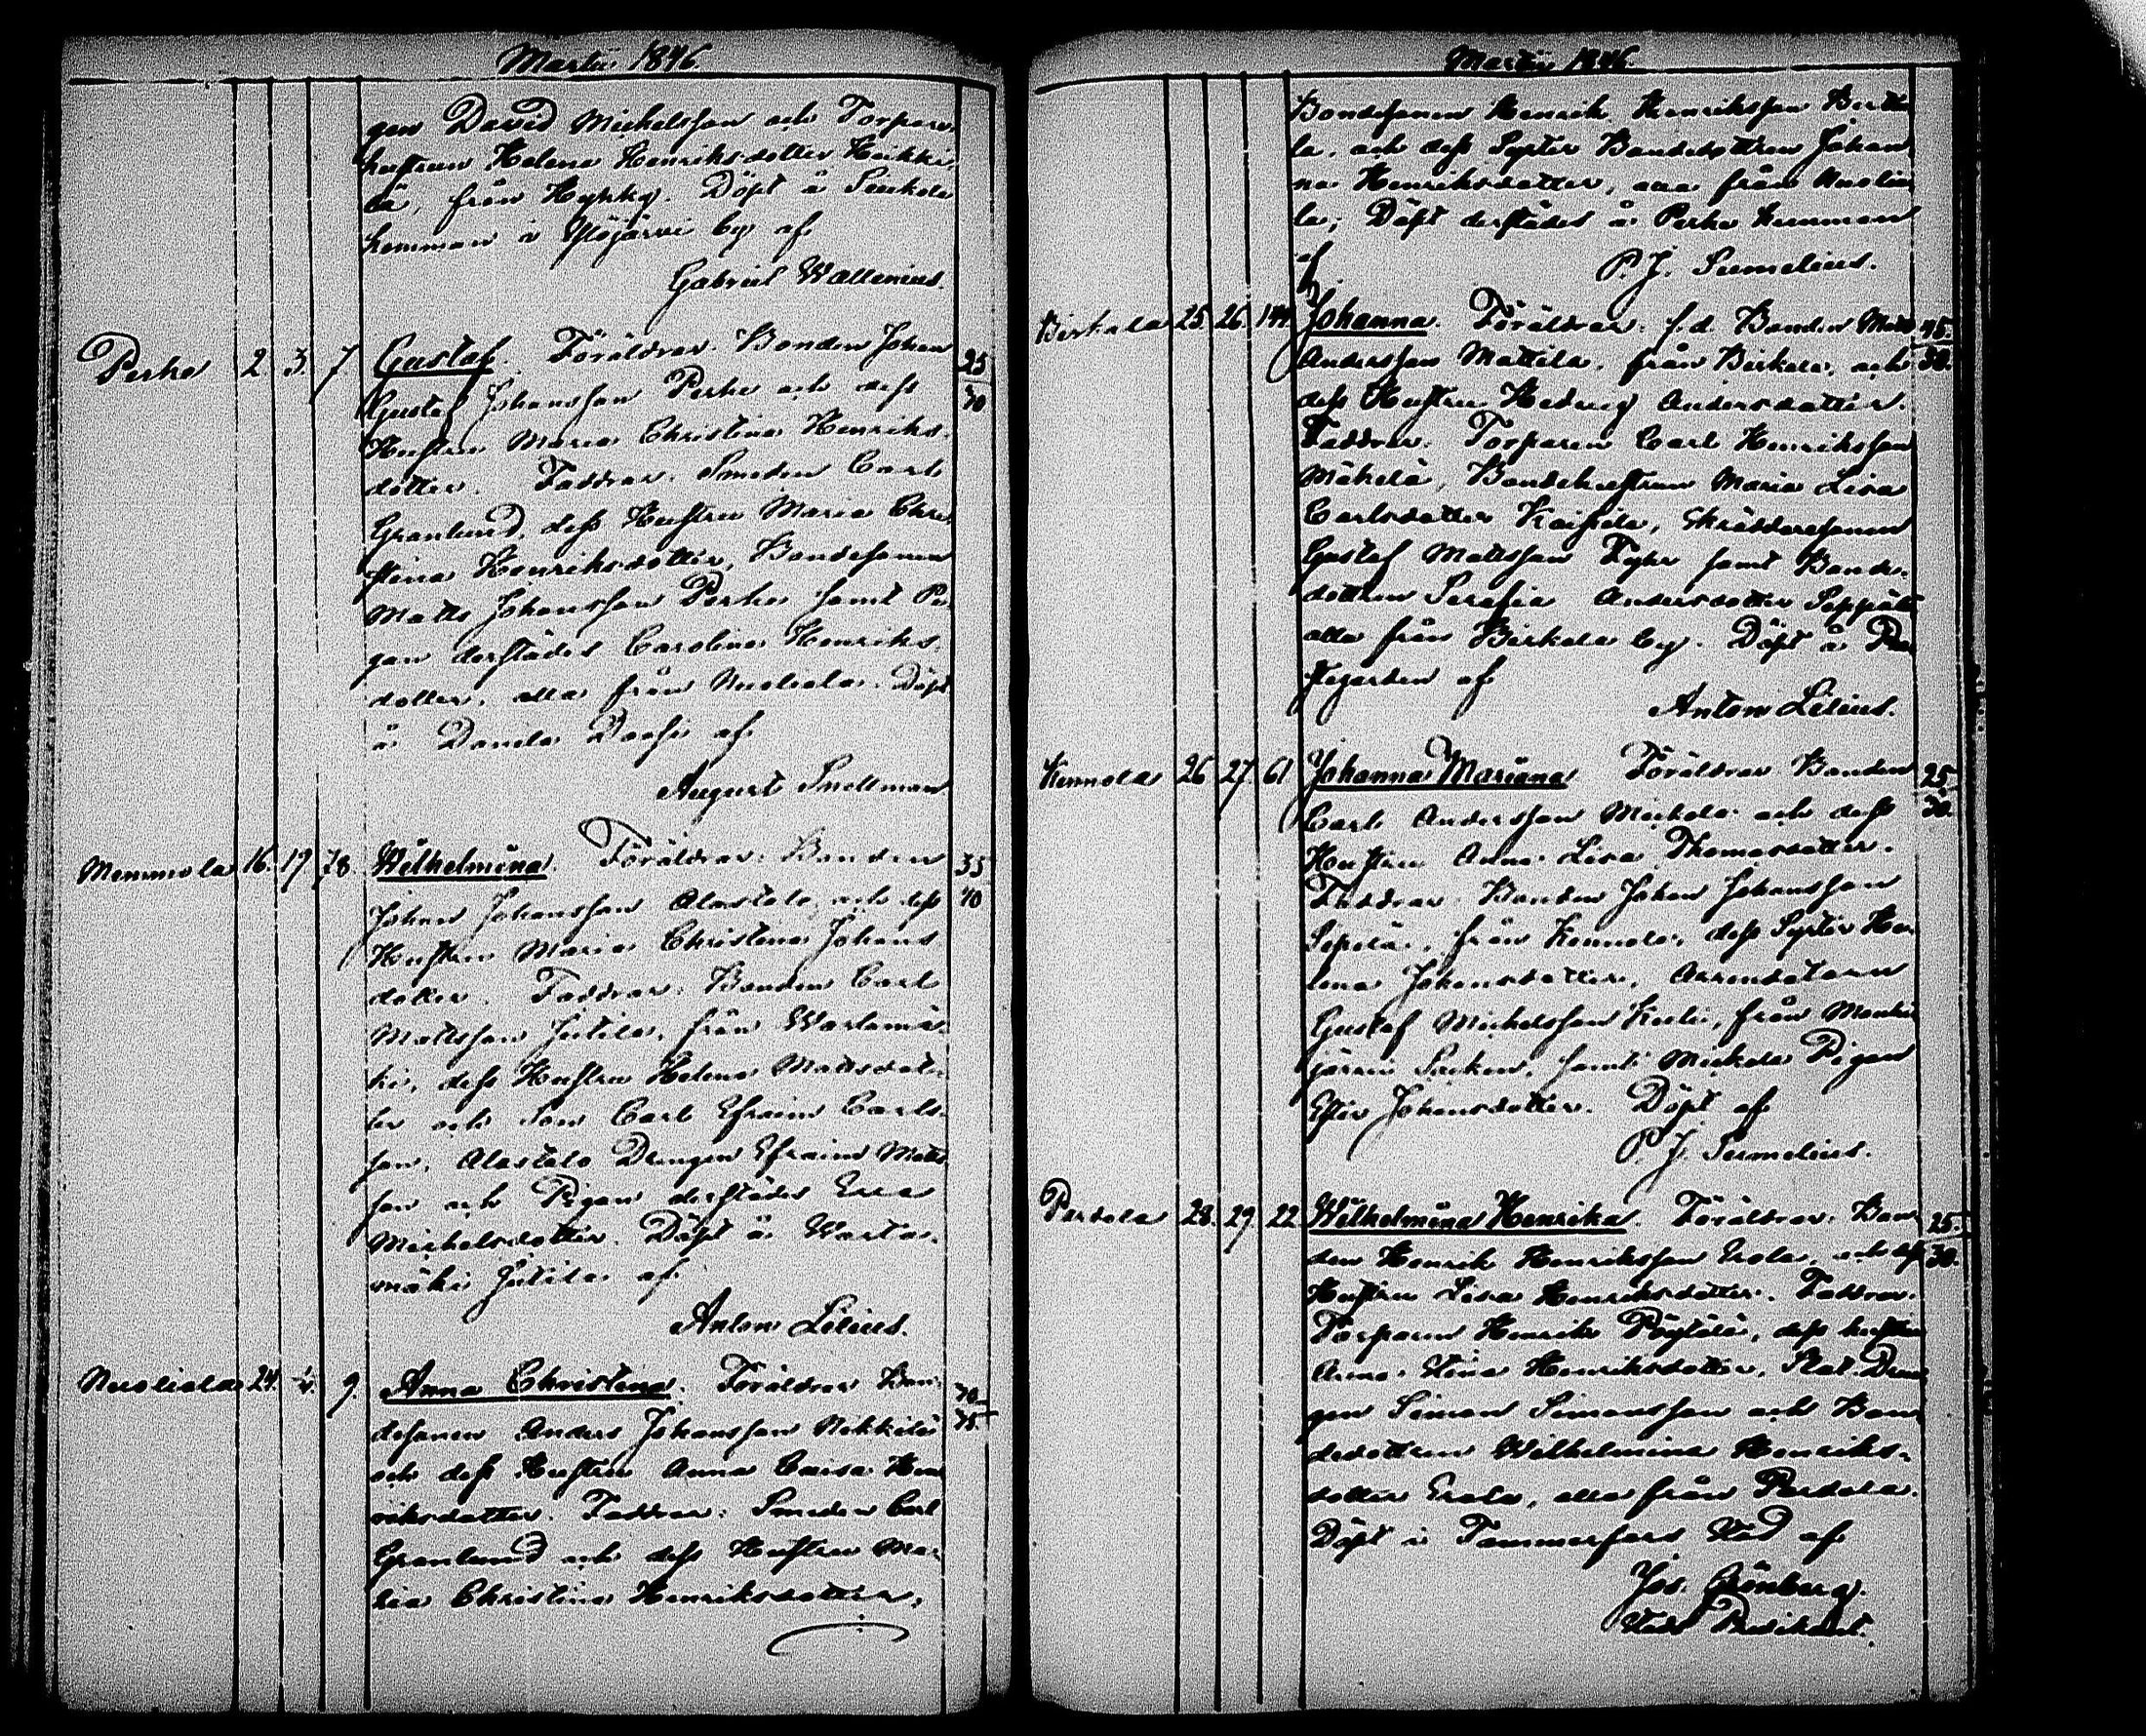 Martii 1846
gen David Michelsson och Torpare
hustrun Helena Henriksdotter Heikki
lä, från Hyhky. Döpt å Suckela
hemman i Ylöjärvi by af
Gabriel Wallenius.
Perho 2 3. 7 Gustaf. Föräldrar. Bonden Johan 25
Gustaf Johansson Perho och dess 30
Hustru Maria Christina Henriks-
dotter. Faddrar. Smeden Carl
Granlund, dess Hustru Maria Chri
stina Henriksdotter, Bondesonen
Matts Johansson Perho samt Pi
gan derstädes Carolina Henriks-
dotter, alla från Nuoliala. Döpt
å Danila af
August Snellman
Memmola 16. 19 78. Wilhelmina. Föräldrar. Bonden 35
Johan Johansson Alastalo och dess 40
Hustru Maria Christina Johans
dotter. Faddrar. Bonden Carl
Mattsson Jutila, från Wartamä-
ki, dess Hustru Helena Mattsdot-
ter och Son Carl Efraim Carls-
son, Alastalo Drengen Efraim Matts
son och Pigan derstädes Eva
Michelsdotter. Döpt å Warta-
mäki Jutila af
Anton Lilius.
Nuoliala 24. 9. Anna Christina. Föräldrar Bon- 30
desonen Anders Johansson Nikkilä 35.
och dess Hustru Anna Caisa Hen
riksdotter. Faddrar: Smeden Carl
Granlund och dess Hustru Ma-
ria Christina Henriksdotter,
Martii 1846.
Bondesonen Henrik Henriksson Bertti
la, och dess Syster Bondedottren Johan
na Henriksdotter, alla från Nuolia
la; Döpt derstädes å Perho Hemman
af P. J. Sumelius.
Birkala 25. 26. 144. Johanna. Föräldrar. f.d. Bonden Matts 45.
Andersson Mattila, från Birkala, och 50.
dess Hustru Hedvig Andersdotter.
Faddrar. Torparen Carl Henriksson
Mäkelä, Bondehustrun Maria Lisa
Carlsdotter Kaifila, Skräddaresonen
Gustaf Mattsson Fyhr samt Bonde-
dottren Serafia Andersdotter Seppälä
alla från Birkala by. Döpt å Pre
stgården af
Anton Lilius.
Kennola 26 27 61 Johanna Mariana Föräldrar Bonden 25
Carl Andersson Mickola och dess 30.
Hustru Anna Lisa Thomasdotter.
Faddrar. Bonden Johan Johansson
Sipilä, från Kennola, dess Syster He-
lena Johansdotter, Arrendatorn
Gustaf Michelsson Kuli, från Mouhi
järvi Socken, samt Mickola Pigan
Ester Johansdotter. Döpt af
P. J. Sumelius.
Partola 28. 29 22 Wilhelmina Henrika. Föräldrar. Bon 25.
den Henrik Henriksson Erola, och dess 30.
Hustru Lisa Henriksdotter. Faddrar.
Torparen Henrik Pöytälä, dess hustru
Anna Stina Henriksdotter, Stat-Dren
gen Simon Simonsson och Bon
dedottren Wilhelmina Henriks-
dotter Erola, alla från Partola.
Döpt i Tammerfors Stad af
Jos. Grönberg.
Stads Predikant.